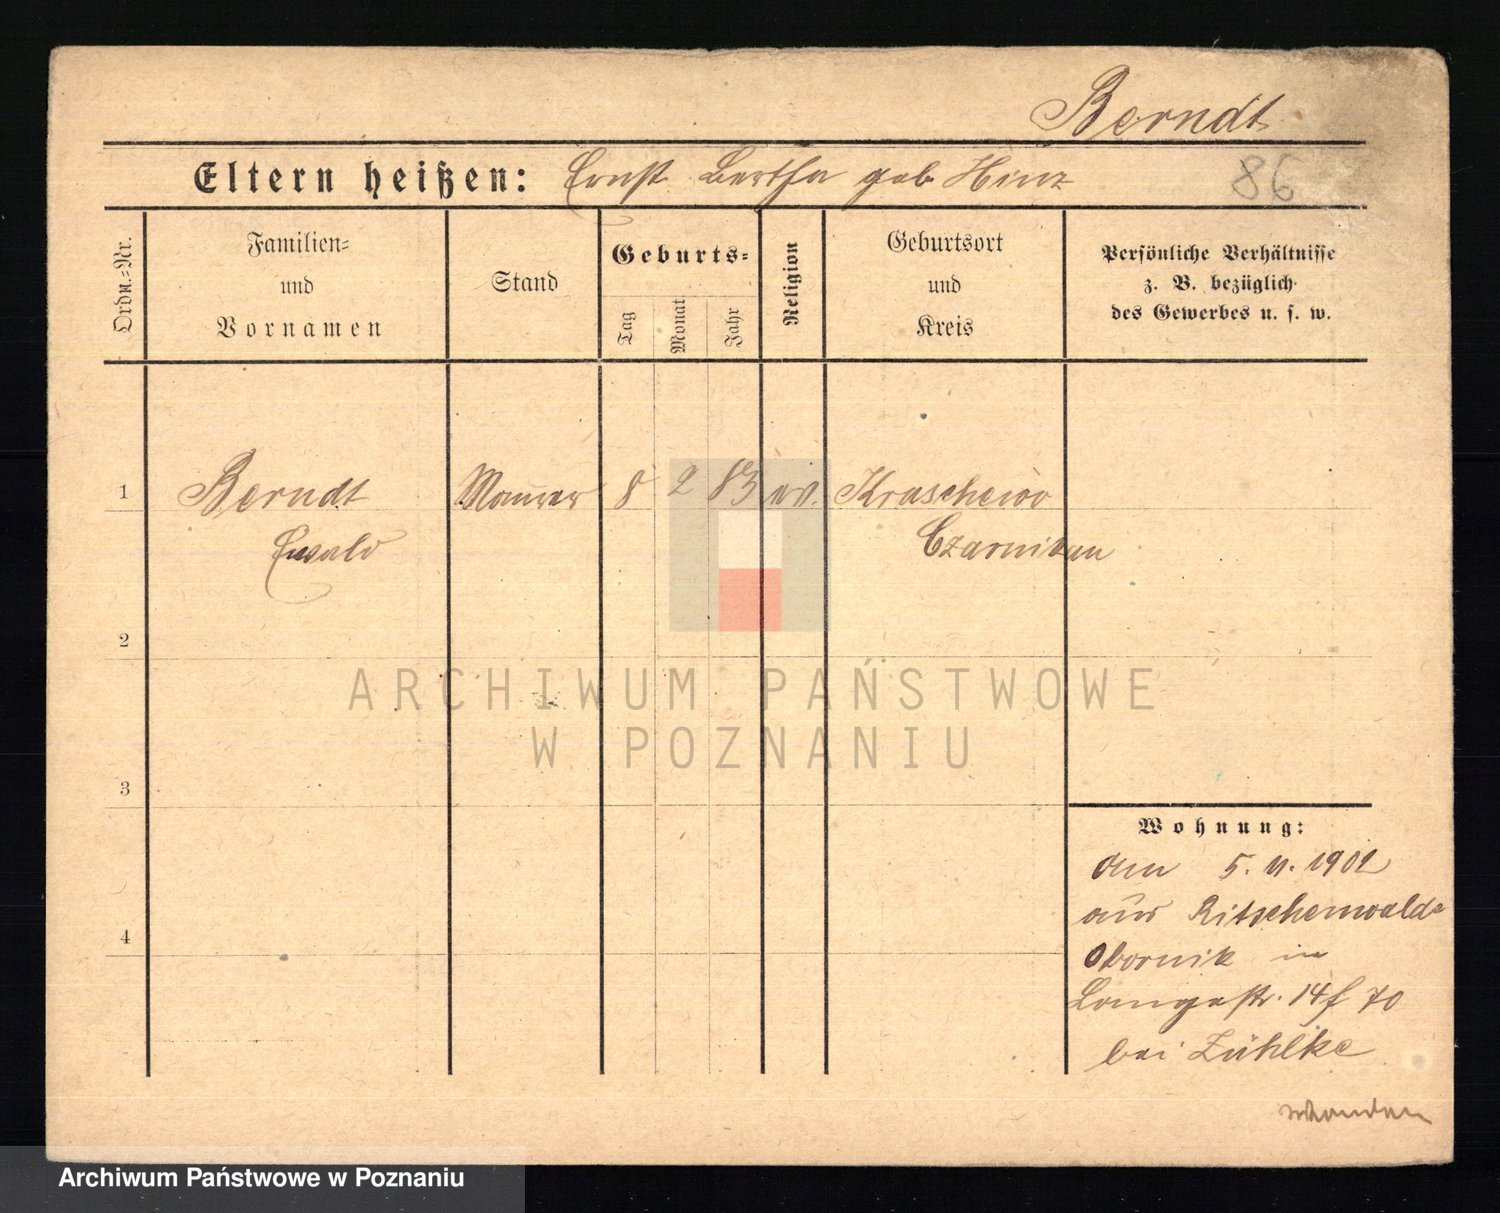 Berndt
Eltern heißen: Ernst Bertha geb Hinz
86
Ordn.-Nr.
Familien-
und
Vornamen
Stand
Geburts-
Tag
Monat
Jahr
Religion
Geburtsort
und
Kreis
Persönliche Verhältnisse
z. B. bezüglich
des Gewerbes u. s. w.
1 Berndt Maurer 8 2 83 ev. Kruschewo
Ewald Czarnikau
2
3
4
Wohnung:
Am 5. 11. 1902
aus Ritschenwalde
Obornik in
Langestr. 14 f 70
bei Zühlke
wenden
ARCHIWUM PAŃSTWOWE
W POZNANIU
Archiwum Państwowe w Poznaniu